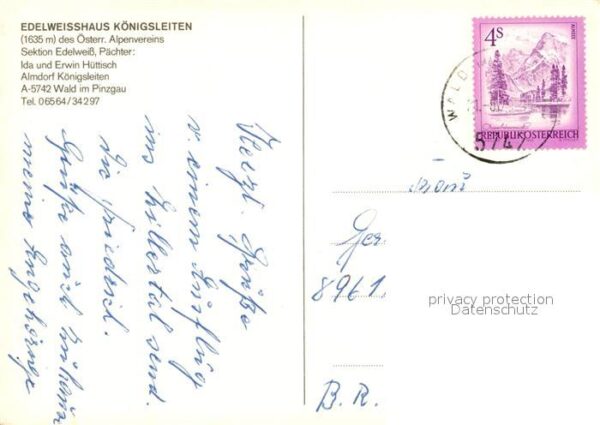 EDELWEISSHAUS KÖNIGSLEITEN
(1635 m) des Österr. Alpenvereins
Sektion Edelweiß, Pächter:
Ida und Erwin Hüttisch
Almdorf Königsleiten
A-5742 Wald im Pinzgau
Tel. 06564/34297
Herzl. Grüße
v. einem Ausflug
ins Zillertal send.
die
Grüße auch
meine Angehörige
4S
REPUBLIK ÖSTERREICH
WALD
8961
B. R.
privacy protection
Datenschutz